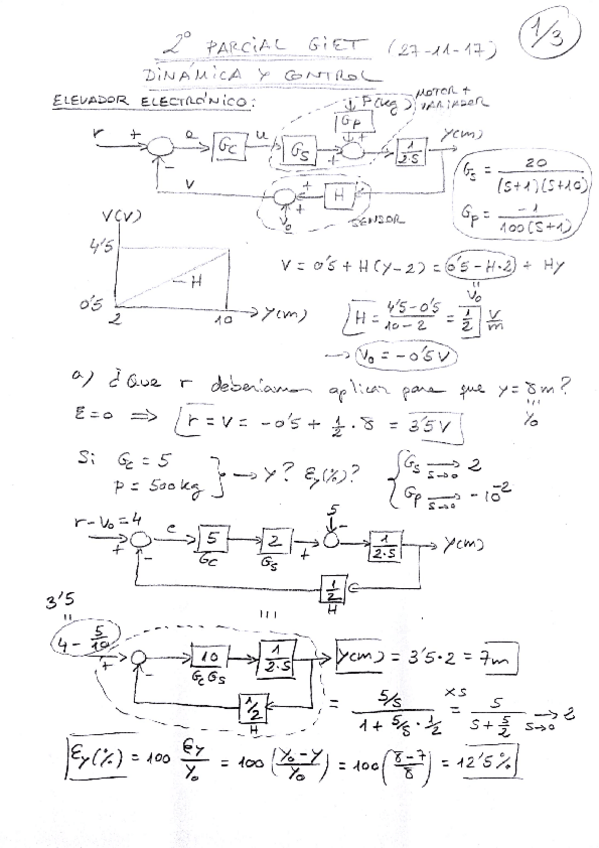 1/3
2º PARCIAL GIET (27-11-17)
DINÁMICA Y CONTROL
ELEVADOR ELECTRÓNICO:
P(kg) MOTOR + VARIADOR
r + e Gc u Gs + Gp + 1/(2·S) Y(m)
- V + H + V0 SENSOR
Gs = 20/((S+1)(S+10))
Gp = -1/(100(S+1))
V(V)
4'5
H
0'5
2 10 Y(m)
V = 0'5 + H(Y-2) = 0'5 - H·2 + HY
V0
H = (4'5-0'5)/(10-2) = 1/2 V/m
→ V0 = -0'5V
a) ¿Que r deberíamos aplicar para que y = 8m?
ε=0 ⟹ r = V = -0'5 + 1/2 · 8 = 3'5V
Y0
Si Gc = 5
P = 500kg } → Y? εy(%)?
{ Gs → 2
S→0
Gp → -10^-2
S→0
r-V0=4 + - e 5 Gc 2 Gs + 5 - 1/(2·S) Y(m)
1/2
H
3'5
4 - 5/10 + - 10 GcGs 1/(2·S) Y(m) = 3'5·2 = 7m
1/2
H
= (5/S)/(1 + 5/S · 1/2) =xS 5/(S + 5/2) → 2
S→0
εy(%) = 100 εy/Y0 = 100 ((Y0-Y)/Y0) = 100 ((8-7)/8) = 12'5%